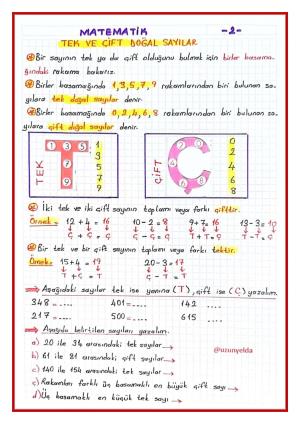 MATEMATİK -2-
TEK VE ÇİFT DOĞAL SAYILAR
Bir sayının tek ya da çift olduğunu bulmak için birler basama-
ğındaki rakama bakarız.
Birler basamağında 1,3,5,7,9 rakamlarından biri bulunan sa-
yılara tek doğal sayılar denir.
Birler basamağında 0,2,4,6,8 rakamlarından biri bulunan sa-
yılara çift doğal sayılar denir.
TEK
1
3
5
7
9
ÇİFT
0
2
4
6
8
İki tek ve iki çift sayının toplamı veya farkı çifttir.
Örnek= 12+4=16 10-2=8 9+7=16 13-3=10
Ç+Ç=Ç Ç-Ç=Ç T+T=Ç T-T=Ç
Bir tek ve bir çift sayının toplamı veya farkı tektir.
Örnek: 15+4=19 20-3=17
T+Ç=T Ç-T=T
Aşağıdaki sayılar tek ise yanına (T), çift ise (Ç) yazalım.
348 = .... 401 = .... 142 ....
217 = .... 500 = .... 615 ....
Aşağıda belirtilen sayıları yazalım.
a) 20 ile 34 arasındaki tek sayılar
b) 61 ile 81 arasındaki çift sayılar
c) 140 ile 154 arasındaki tek sayılar
ç) Rakamları farklı üç basamaklı en büyük çift sayı
d) Üç basamaklı en küçük tek sayı
@uzunyelda